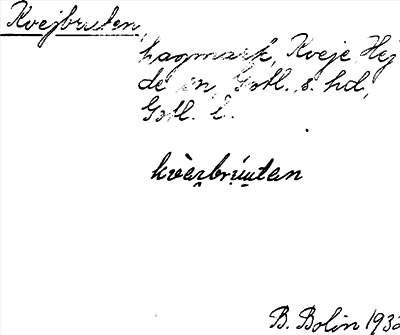 Kvejbruten,
hagmark, Kveje, Hej
de sn, Gotl. s. hd,
Gotl. l.
kvèi̯brúu̯tən
B. Bolin 1932